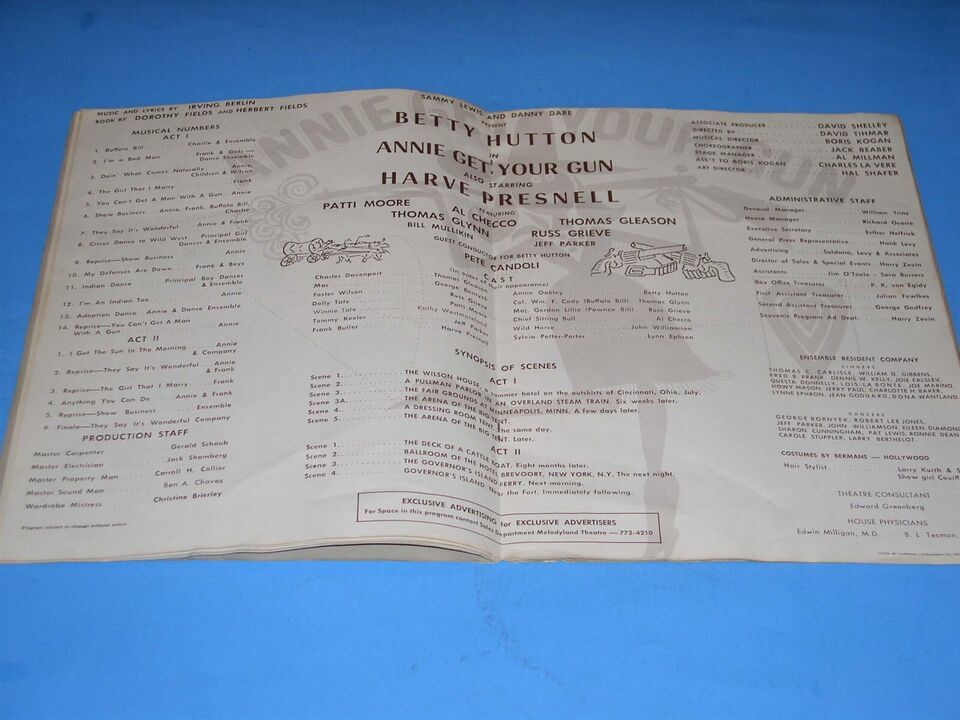 MUSIC AND LYRICS BY IRVING BERLIN
BOOK BY DOROTHY FIELDS AND HERBERT FIELDS
MUSICAL NUMBERS
ACT I
1. Buffalo Bill Charlie & Ensemble
2. I'm a Bad Man Frank & Girls
Dance Ensemble
3. Doin' What Comes Naturally Annie,
Children & Wilson
4. The Girl That I Marry Frank
5. You Can't Get A Man With A Gun Annie
6. Show Business Annie, Frank, Buffalo Bill,
Charlie
7. They Say It's Wonderful Annie & Frank
8. Circus Dance to Wild West Principal Girl
Dancer & Ensemble
9. Reprise—Show Business Annie
10. My Defenses Are Down Frank & Boys
11. Indian Dance Principal Boy Dancer
& Ensemble
12. I'm An Indian Too Annie
13. Adoption Dance Annie & Dance Ensemble
14. Reprise—You Can't Get A Man
With A Gun Annie
ACT II
1. I Got The Sun In The Morning Annie
& Company
2. Reprise—They Say It's Wonderful Annie
& Frank
3. Reprise—The Girl That I Marry Frank
4. Anything You Can Do Annie & Frank
5. Reprise—Show Business Ensemble
6. Finale—They Say It's Wonderful Company
PRODUCTION STAFF
Master Carpenter Gerald Schaub
Master Electrician Jack Shamberg
Master Property Man Carroll H. Collier
Master Sound Man Ben A. Chavez
Wardrobe Mistress Christine Brierley
Program subject to change without notice
ANNIE GET YOUR GUN
SAMMY LEWIS AND DANNY DARE
PRESENT
BETTY HUTTON
IN
ANNIE GET YOUR GUN
ALSO STARRING
HARVE PRESNELL
FEATURING
PATTI MOORE AL CHECCO THOMAS GLEASON
THOMAS GLYNN RUSS GRIEVE
BILL MULLIKIN JEFF PARKER
GUEST CONDUCTOR FOR BETTY HUTTON
PETE CANDOLI
CAST
(In order of their appearance)
Charles Davenport Thomas Gleason
Mac George Bornyek
Foster Wilson Russ Grieve
Dolly Tate Patti Moore
Winnie Tate Kathy Westmoreland
Tommy Keeler Jeff Parker
Frank Butler Harve Presnell
Annie Oakley Betty Hutton
Col. Wm. F. Cody (Buffalo Bill) Thomas Glynn
Maj. Gordon Lillie (Pawnee Bill) Russ Grieve
Chief Sitting Bull Al Checco
Wild Horse John Williamson
Sylvia Potter-Porter Lynn Ephron
SYNOPSIS OF SCENES
ACT I
Scene 1. THE WILSON HOUSE, a summer hotel on the outskirts of Cincinnati, Ohio, July.
Scene 2. A PULLMAN PARLOR IN AN OVERLAND STEAM TRAIN. Six weeks later.
Scene 3. THE FAIR GROUNDS AT MINNEAPOLIS, MINN. A few days later.
Scene 3A. THE ARENA OF THE BIG TENT.
Scene 4. A DRESSING ROOM TENT. The same day.
Scene 5. THE ARENA OF THE BIG TENT. Later.
ACT II
Scene 1. THE DECK OF A CATTLE BOAT. Eight months later.
Scene 2. BALLROOM OF THE HOTEL BREVOORT, NEW YORK, N.Y. The next night.
Scene 3. THE GOVERNOR'S ISLAND FERRY. Next morning.
Scene 4. GOVERNOR'S ISLAND. Near the Fort. Immediately following.
EXCLUSIVE ADVERTISING for EXCLUSIVE ADVERTISERS
For Space in this program contact Sales Department Melodyland Theatre — 772-4210
ASSOCIATE PRODUCER DAVID SHELLEY
DIRECTED BY DAVID TIHMAR
MUSICAL DIRECTOR BORIS KOGAN
CHOREOGRAPHER JACK BEABER
STAGE MANAGER AL MILLMAN
ASS'T TO BORIS KOGAN CHARLES LA VERE
ART DIRECTOR HAL SHAFER
ADMINISTRATIVE STAFF
General Manager William Trins
House Manager Richard Oserie
Executive Secretary Esther Helfrick
General Press Representative Hank Levy
Advertising Saldana, Levy & Associates
Director of Sales & Special Events Harry Zevin
Assistants Jim O'Toole - Sara Burress
Box Office Treasurer P. K. von Egidy
First Assistant Treasurer Julian Fowlkes
Second Assistant Treasurer George Godfrey
Souvenir Program Ad Dept. Harry Zevin
ENSEMBLE RESIDENT COMPANY
SINGERS
THOMAS C. CARLISLE, WILLIAM D. GIBBENS,
FRED B. FRANK, DENNIS W. KELLY, JOIE FALSLEV,
QUESTA DONNELLY, LOIS LA BONTE, JOE MARINO,
HOWY MASON, JERRY PAUL, CHARLOTTE BAKER,
LYNNE EPHRON, JEAN GODDARD, DONA WANTLAND
DANCERS
GEORGE BORNYEK, ROBERT LEE JONES,
JEFF PARKER, JOHN WILLIAMSON, EILEEN DIAMOND
SHARON CUNNINGHAM, PAT LEWIS, RONNIE DEAN
CAROLE STUPPLER, LARRY BERTHELOT
COSTUMES BY BERMANS — HOLLYWOOD
Hair Stylist Larry Kurth & S
Show girl Couiff
THEATRE CONSULTANT
Edward Greenberg
HOUSE PHYSICIANS
Edwin Milligan, M.D. B. L. Tesman,